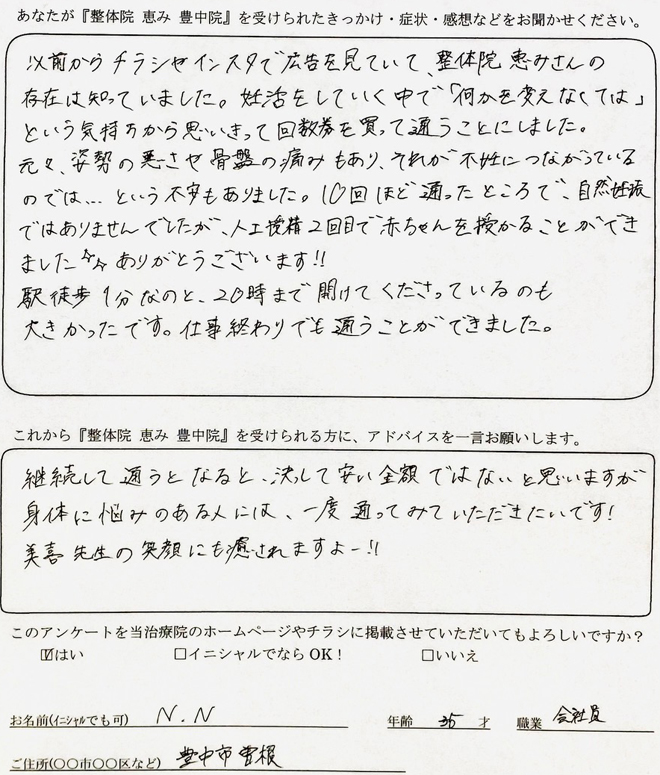 あなたが『整体院 恵み 豊中院』を受けられたきっかけ・症状・感想などをお聞かせください。
以前からチラシやインスタで広告を見ていて、整体院 恵みさんの
存在は知っていました。妊活をしていく中で「何かを変えなくては」
という気持ちから思いきって回数券を買って通うことにしました。
元々、姿勢の悪さや骨盤の痛みもあり、それが不妊につながっている
のでは…という不安もありました。10回ほど通ったところで、自然妊娠
ではありませんでしたが、人工授精2回目で赤ちゃんを授かることができ
ました☆☆ありがとうございます!!
駅徒歩1分なのと、20時まで開けてくださっているのも
大きかったです。仕事終わりでも通うことができました。
これから『整体院 恵み 豊中院』を受けられる方に、アドバイスを一言お願いします。
継続して通うとなると、決して安い金額ではないと思いますが
身体に悩みのある人には、一度通ってみていただきたいです!
美喜先生の笑顔にも癒されますよー!!
このアンケートを当治療院のホームページやチラシに掲載させていただいてもよろしいですか？
☑はい □イニシャルでならOK！ □いいえ
お名前(イニシャルでも可) N.N 年齢 35 才 職業 会社員
ご住所(〇〇市〇〇区など) 豊中市曽根